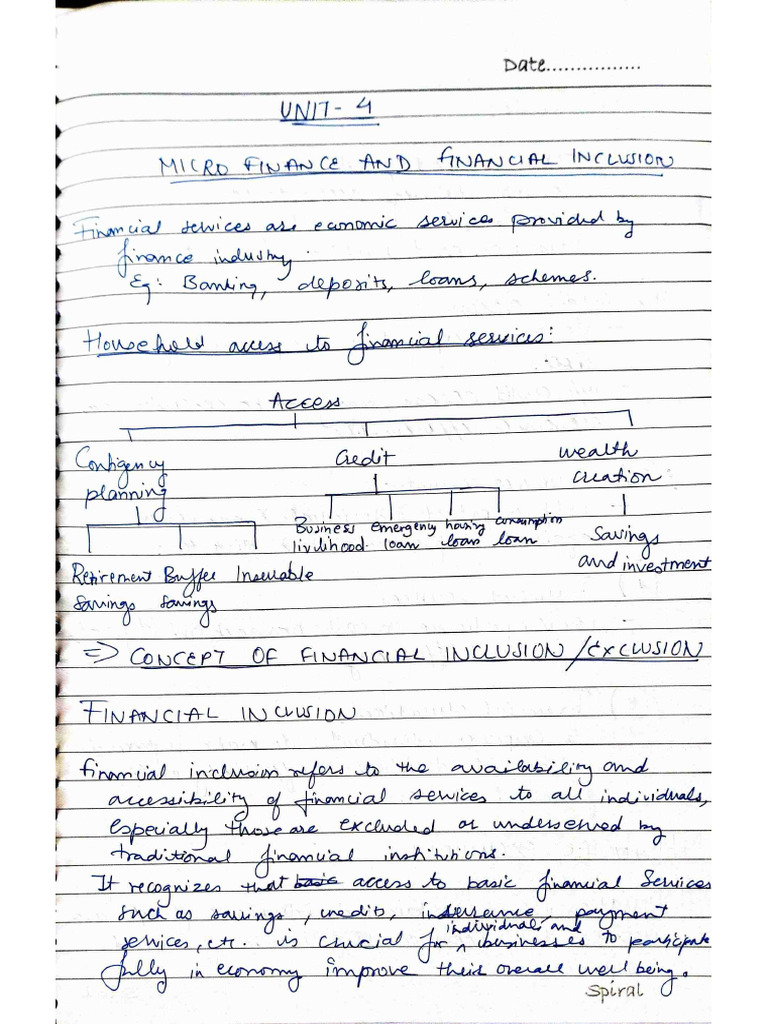 Date................
UNIT- 4
MICRO FINANCE AND FINANCIAL INCLUSION
Financial services are economic services provided by
finance industry.
Eg: Banking, deposits, loans, schemes.
Household access to financial services:
Access
Contigency planning
Credit
Wealth creation
Retirement Savings
Buffer savings
Insurable
Business livlihood
emergency loan
housing loan
consumption loan
Savings and investment
=> CONCEPT OF FINANCIAL INCLUSION /EXCLUSION
FINANCIAL INCLUSION
financial inclusion refers to the availability and
accessibility of financial services to all individuals,
especially those are excluded or underserved by
traditional financial institutions.
It recognizes that basic access to basic financial services
such as savings, credits, insurance, payment
services, etc. is crucial for individuals and businesses to participate
fully in economy improve their overall well being.
Spiral